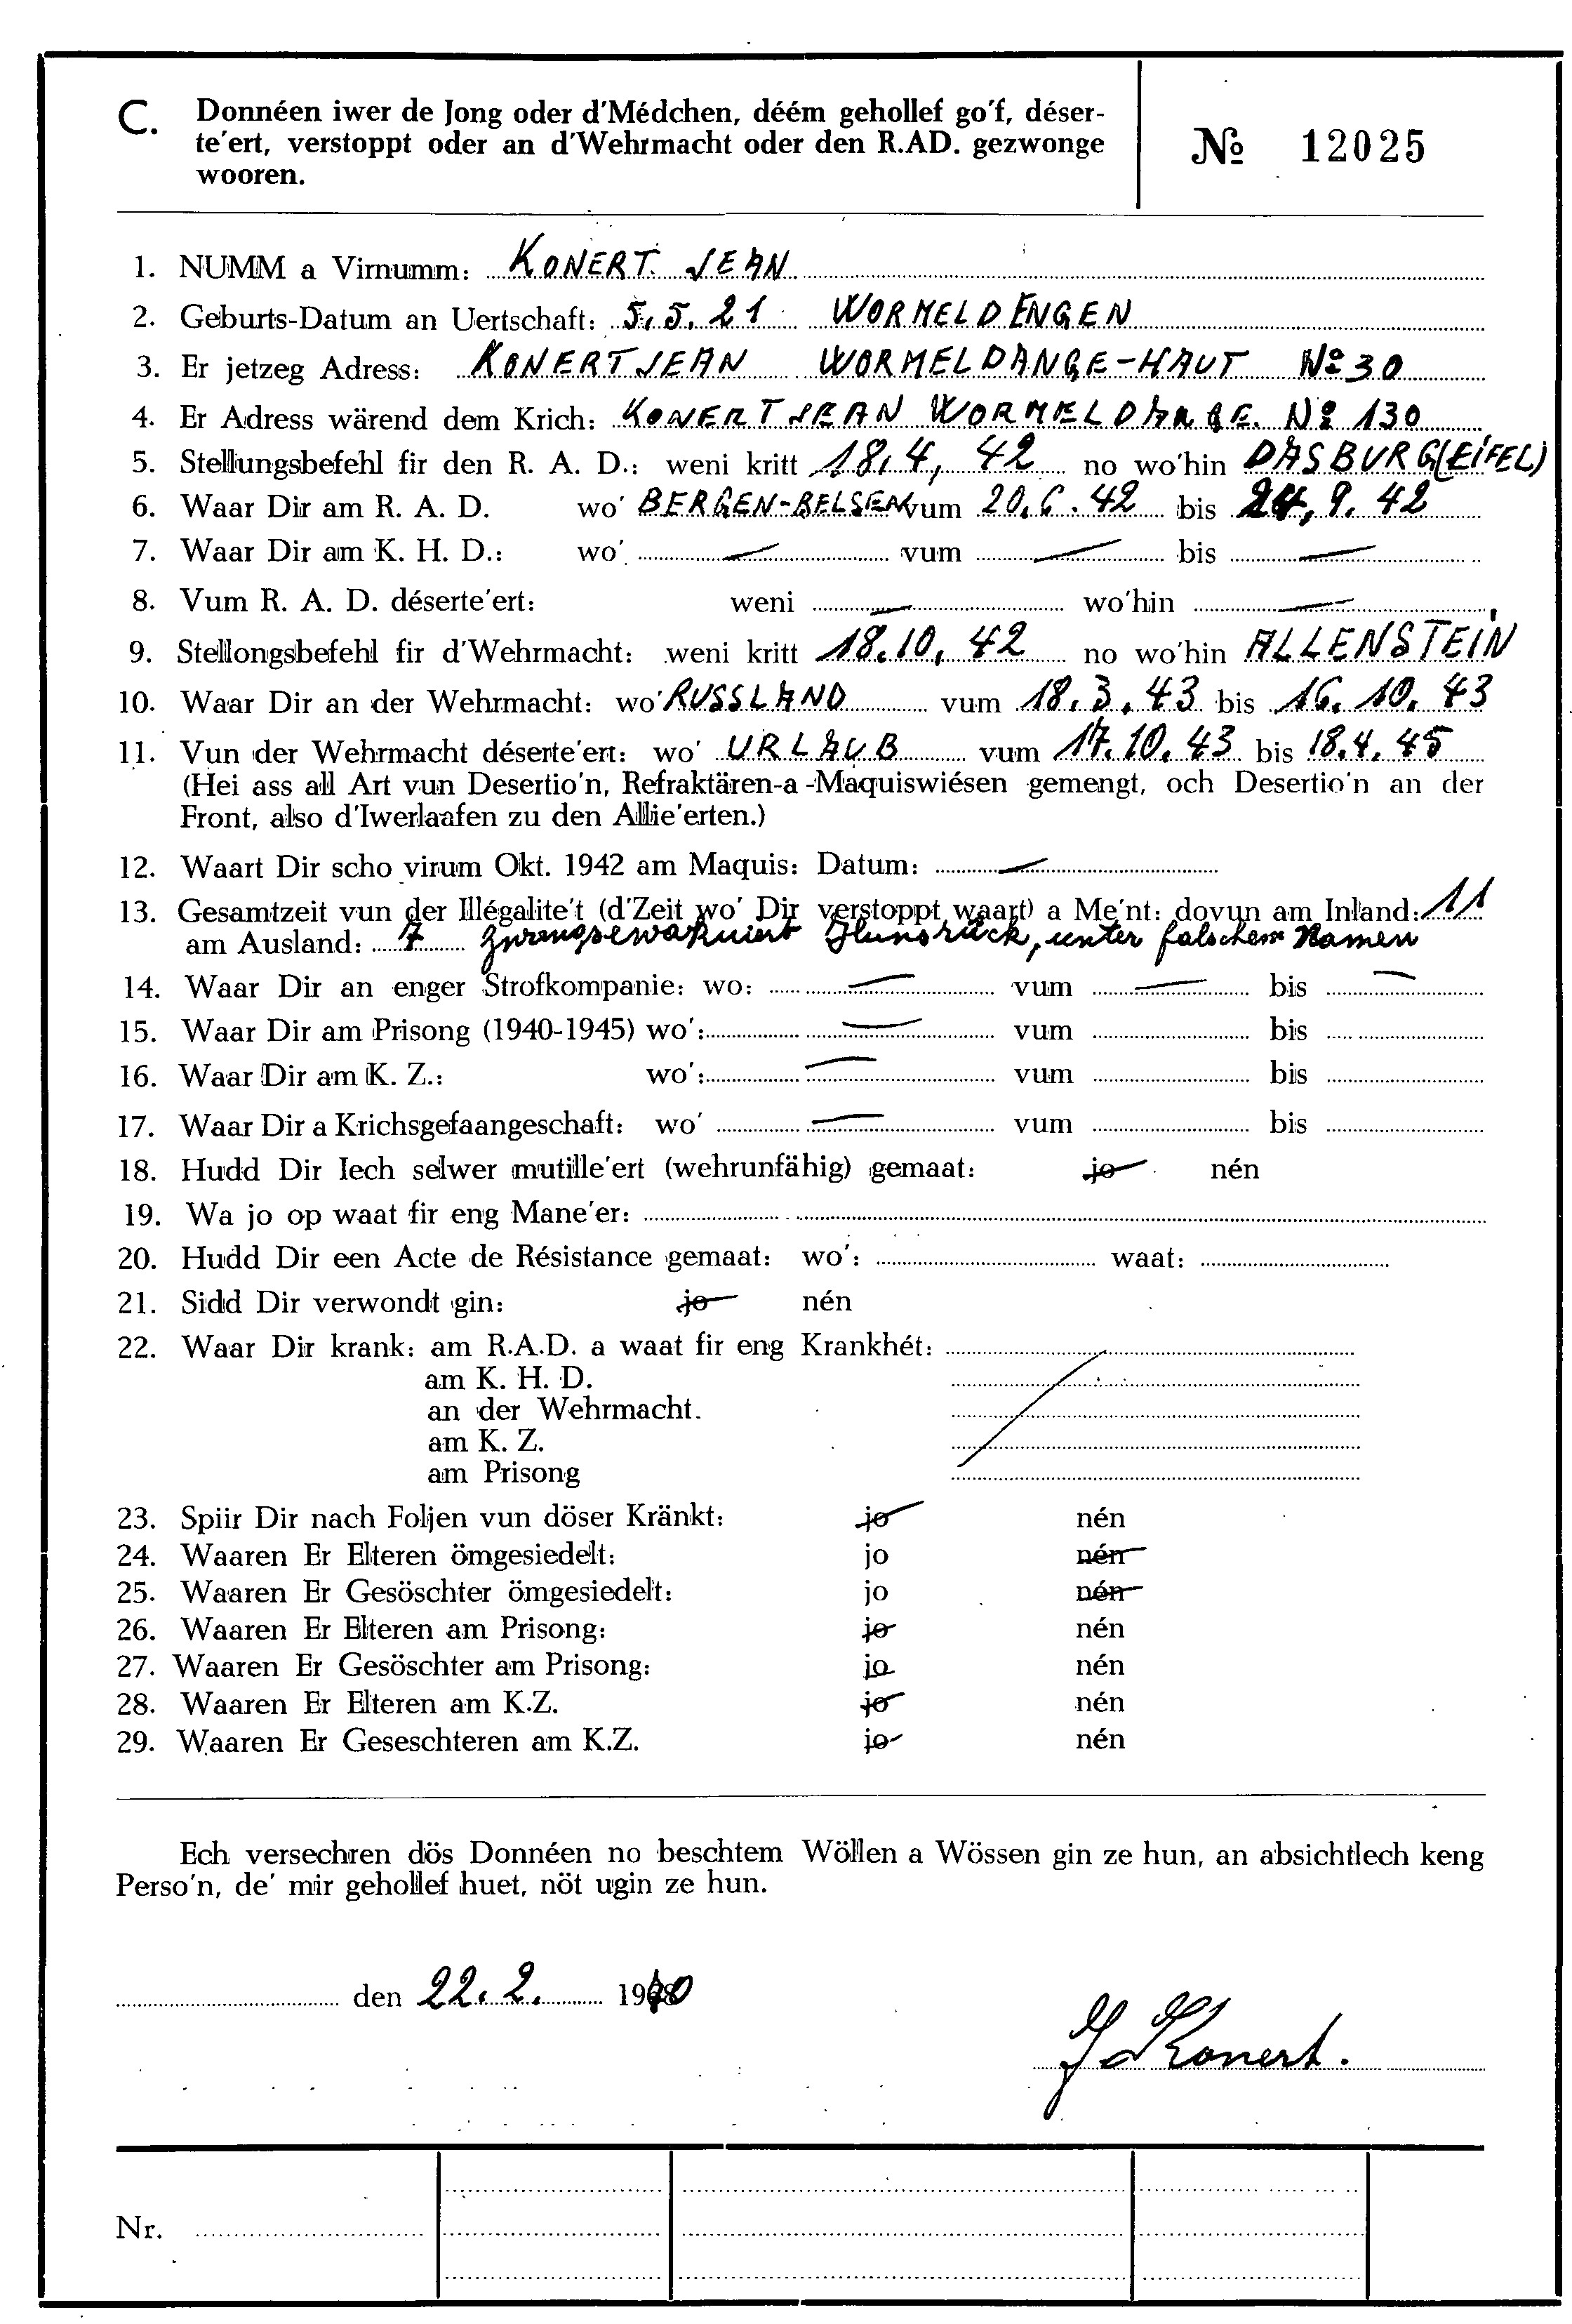 C. Donnéen iwer de Jong oder d'Médchen, déém gehollef go'f, déser-
te'ert, verstoppt oder an d'Wehrmacht oder den R.AD. gezwonge
wooren.
№ 12025
1. NUMM a Virnumm: KONERT JEAN
2. Geburts-Datum an Uertschaft: 5.5.21 WORMELDENGEN
3. Er jetzeg Adress: KONERT JEAN WORMELDANGE-HAUT № 30
4. Er Adress wärend dem Krich: KONERT JEAN WORMELDANGE. № 130
5. Stellungsbefehl fir den R. A. D.: weni kritt 18.4, 42 no wo'hin DASBURG (EIFEL)
6. Waar Dir am R. A. D. wo' BERGEN-BELSEN vum 20.6.42 bis 24, 9. 42
7. Waar Dir am K. H. D.: wo' — vum — bis —
8. Vum R. A. D. déserte'ert: weni — wo'hin —
9. Stellongsbefehl fir d'Wehrmacht: weni kritt 18.10, 42 no wo'hin ALLENSTEIN
10. Waar Dir an der Wehrmacht: wo' RUSSLAND vum 18.3.43 bis 16.10.43
11. Vun der Wehrmacht déserte'ert: wo' URLAUB vum 17.10.43 bis 18.4.45
(Hei ass all Art vun Desertio'n, Refraktären-a-Maquiswiésen gemengt, och Desertio'n an der
Front, also d'Iwerlaafen zu den Allie'erten.)
12. Waart Dir scho virum Okt. 1942 am Maquis: Datum: —
13. Gesamtzeit vun der Illégalite't (d'Zeit wo' Dir verstoppt waart) a Me'nt: dovun am Inland: 11
am Ausland: 7 Zwangsewakuiert Hunsrück, unter falschem Namen
14. Waar Dir an enger Strofkompanie: wo: — vum — bis —
15. Waar Dir am Prisong (1940-1945) wo': — vum bis
16. Waar Dir am K. Z.: wo': — vum bis
17. Waar Dir a Krichsgefaangeschaft: wo' — vum bis
18. Hudd Dir Iech selwer mutille'ert (wehrunfähig) gemaat: jo nén
19. Wa jo op waat fir eng Mane'er:
20. Hudd Dir een Acte de Résistance gemaat: wo': waat:
21. Sidd Dir verwondt gin: jo nén
22. Waar Dir krank: am R.A.D. a waat fir eng Krankhét:
am K. H. D.
an der Wehrmacht.
am K. Z.
am Prisong
23. Spiir Dir nach Foljen vun döser Kränkt: jo nén
24. Waaren Er Elteren ömgesiedelt: jo nén
25. Waaren Er Gesöschter ömgesiedelt: jo nén
26. Waaren Er Elteren am Prisong: jo nén
27. Waaren Er Gesöschter am Prisong: jo nén
28. Waaren Er Elteren am K.Z. jo nén
29. Waaren Er Geseschteren am K.Z. jo nén
Ech versechren dös Donnéen no beschtem Wöllen a Wössen gin ze hun, an absichtlech keng
Perso'n, de' mir gehollef huet, nöt ugin ze hun.
den 22.2. 1970
J Konert.
Nr.